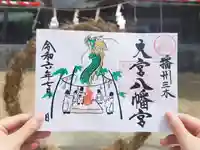 播州三木
大宮八幡宮
令和六年七月 日